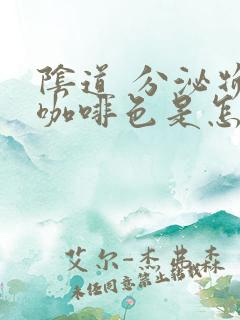 陰道 分泌物
咖啡色是怎
艾尔-杰弗森
未经同意禁止转载